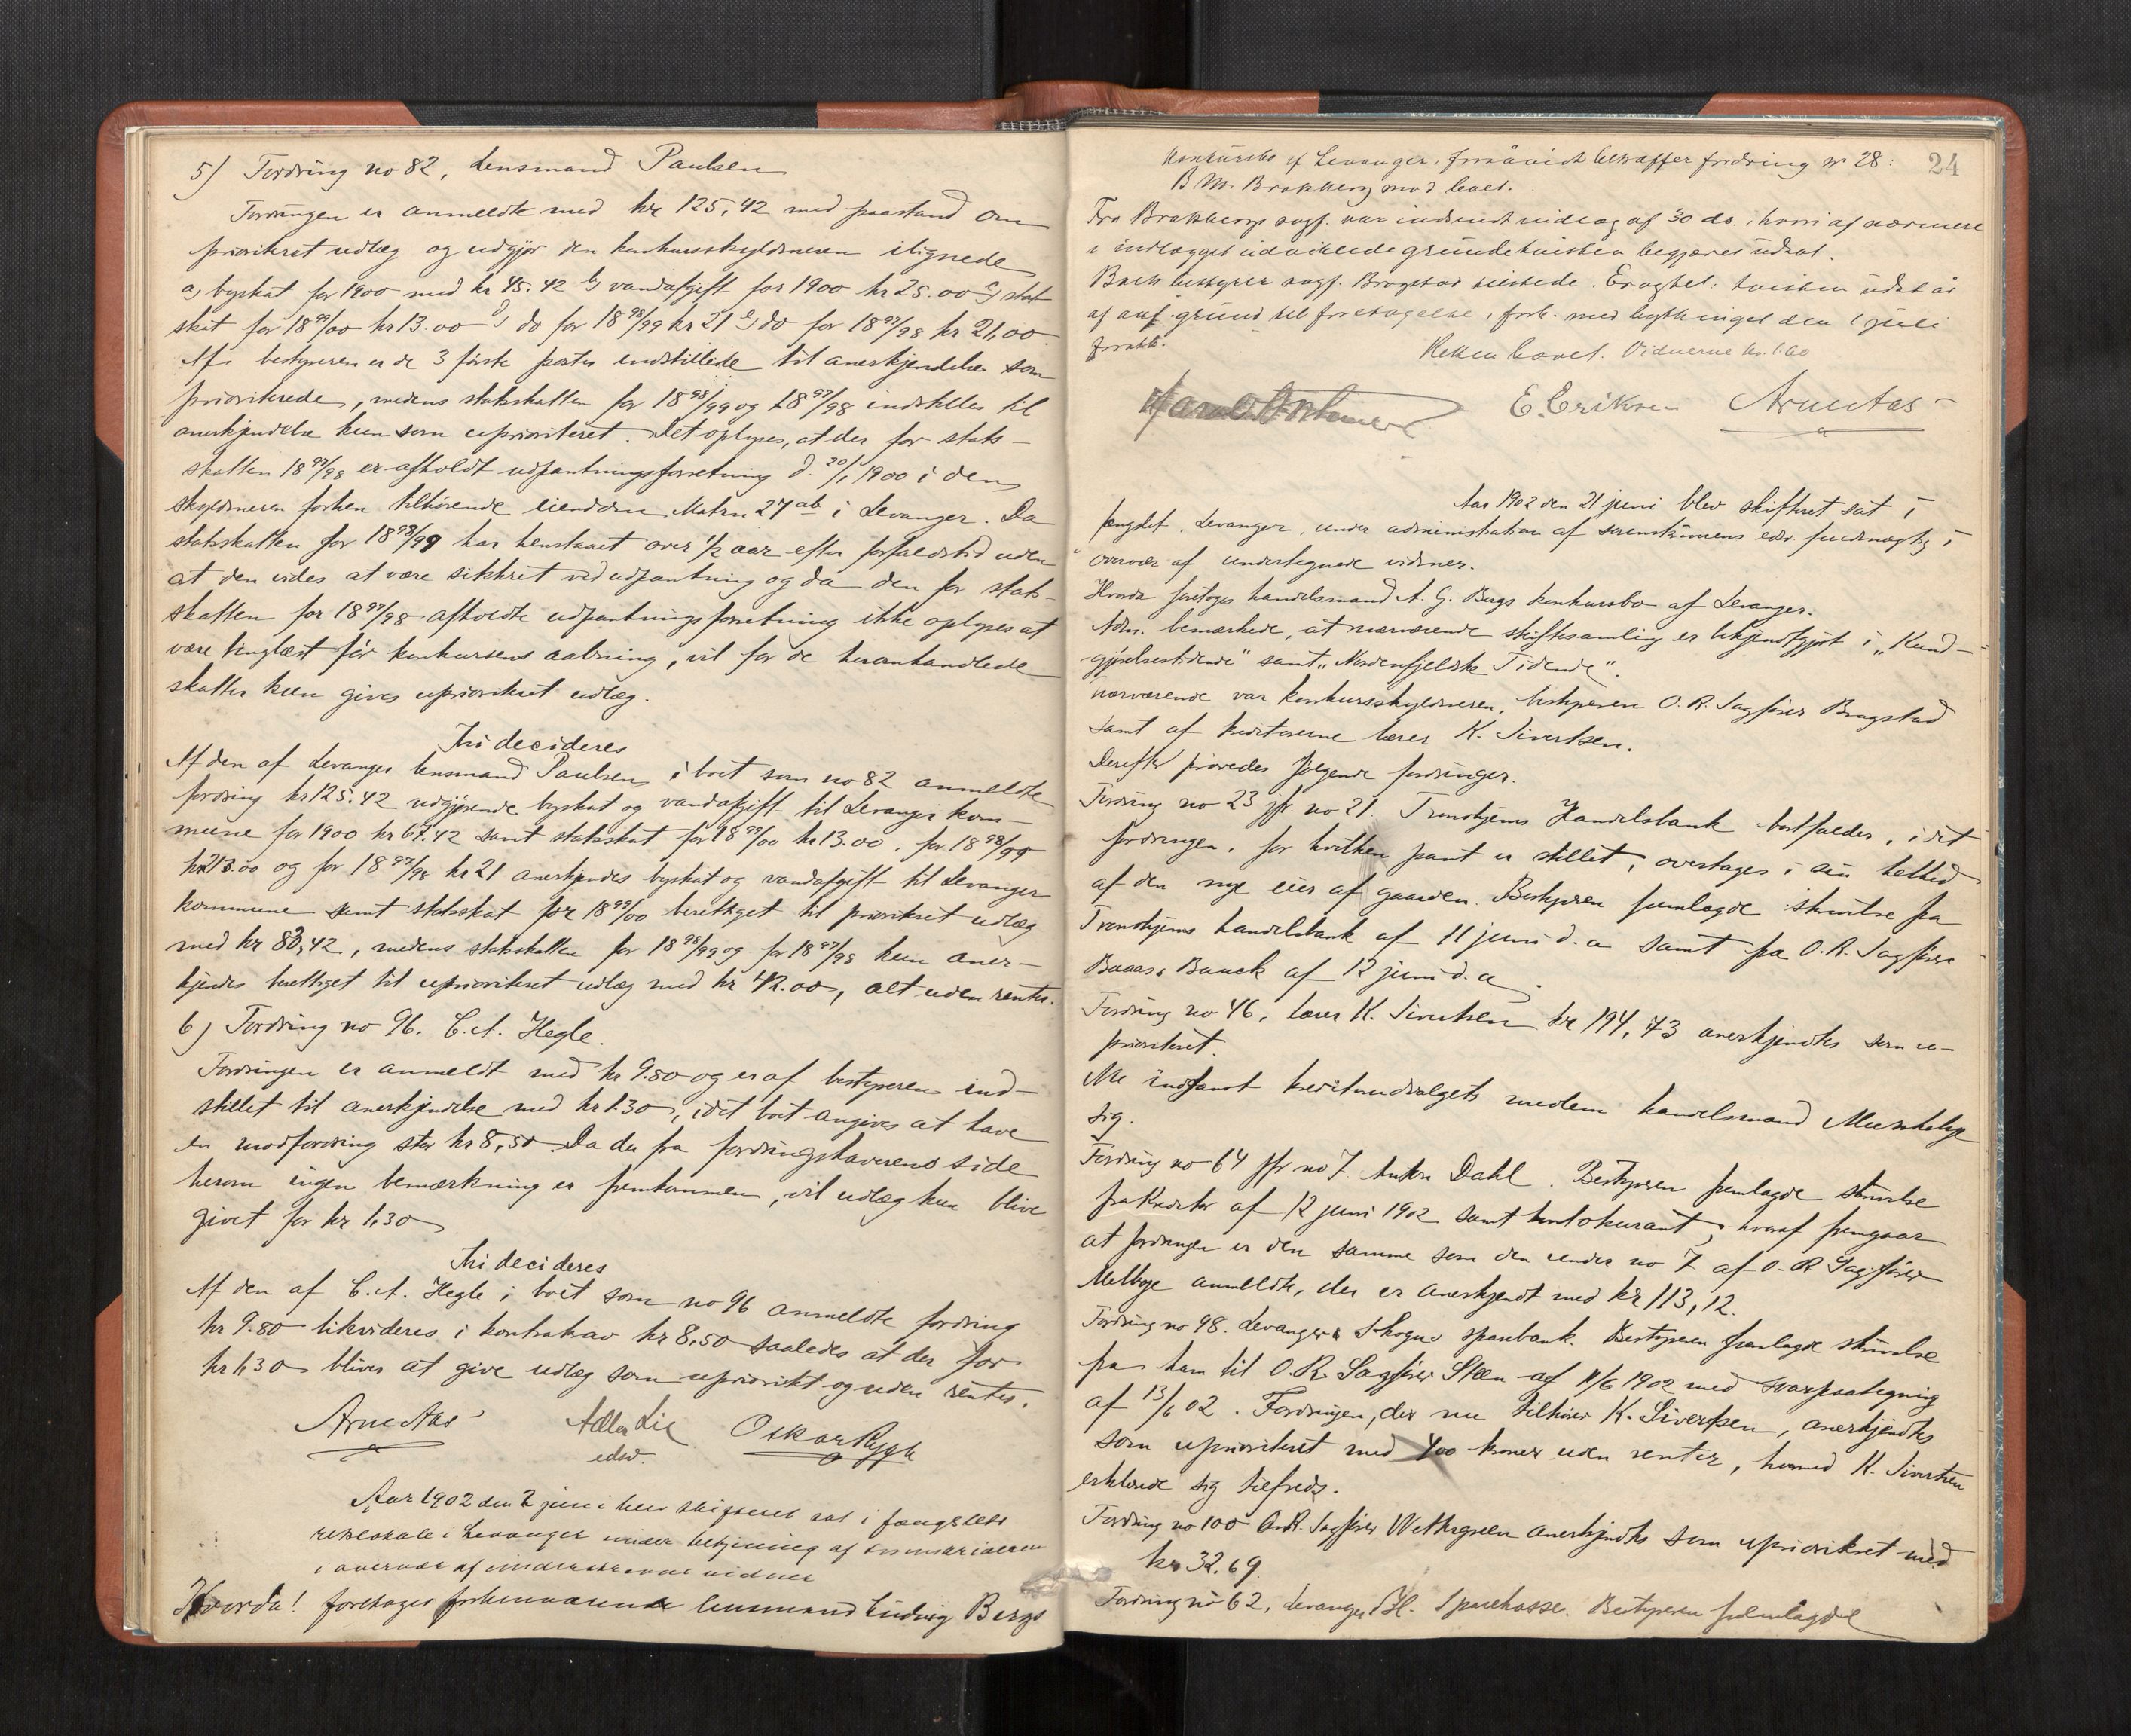 5) Fordring no 82, Lensmand Paulsen
Fordringen er anmeldte med kr 125,42 med paastand om
prioriteret udlæg og udgjør den konkursskyldneren ilignede
a) byskat for 1900 med kr 45.42 b) vandafgift for 1900 kr 25.00 c) stat
skat for 18 99/00 kr 13.00 d) do for 18 98/99 kr 21 e) do for 18 97/98 kr 21,00.
Af bestyreren er de 3 første poster indstillede til anerkjendelse som
prioriterede, medens statsskatten for 18 98/99 og 18 97/98 indstilles til
anerkjendelse kun som uprioriteret. Det oplyses, at der for stats-
skatten 18 97/98 er afholdt udpantningsforretning d. 20/1 1900 i den
skyldneren forhen tilhørende eiendom Matrn 27 ab i Levanger. Da
statsskatten for 18 98/99 har henstaaet over 1/2 aar efter forfaldstid uden
at den vides at være sikkret ved udpantning og da den for stats-
skatten for 18 97/98 afholdte udpantningsforretning ikke oplyses at
være tinglæst før konkursens aabning, vil for de heromhandlede
skatter kun gives uprioriteret udlæg.
Thi decideres
Af den af Levanger lensmand Paulsen i boet som no 82 anmeldte
fordring kr 125.42 udgjørende byskat og vandafgift til Levanger kom-
mune for 1900 kr 67.42 samt statsskat for 18 99/00 kr 13.00, for 18 98/99
og for 18 97/98 kr 21 anerkjendes byskat og vandafgift til Levanger
kommune samt statsskat for 18 99/00 berettiget til prioriteret udlæg
med kr 83,42, medens statsskatten for 18 98/99 og for 18 97/98 kun aner-
kjendes berettiget til uprioriteret udlæg med kr 42.00, alt uden renter.
6) Fordring no 96. C. A. Hegle.
Fordringen er anmeldt med kr 9.80 og er af bestyreren ind-
stillet til anerkjendelse med kr 1.30, idet boet angives at have
en modfordring stor kr 8,50. Da der fra fordringshaverens side
herom ingen bemærkning er fremkommen, vil udlæg kun blive
givet for kr 1,30
Thi decideres
Af den af C. A. Hegle i boet som no 96 anmeldte fordring
kr 9.80 likvideres i kontrakrav kr 8,50 saaledes at der for
kr 1,30 bliver at give udlæg som uprioritet og uden renter.
Arne Aas Lie Oskar Rygh
edsv.
Aar 1902 den 2 juni blev skifteret sat i fængslets
retslokale i Levanger under betjening af sorenskriveren
i overvær af underskrevne vidner
Hvorda! foretages lensmand Ludvig Bergs
24
konkursbo af Levanger, forsåvidt betræffer fordring nr 28:
B. M. Brakberg mod boet.
Fra Brakbergs sagf. var indsendt indlæg af 30 ds. hvori af nærmere
i indlægget udviklede grunde tvisten begjæres udsat.
Boets bestyrer sagf. Bragstad tilstede. Eragtet: tvisten udsat
af anf. grund til foretagelse, forb. med bythinget den 1 juli
Retten hævet. Vidnerne kr. 1.60
E. Eriksen Arne Aas
Aar 1902 den 21 juni blev skifteret sat i
fængslet, Levanger, under administration af sorenskriverens edsv. fuldmægtig i
overvær af undertegnede vidner.
Hvorda foretoges handelsmand A. G. Bergs konkursbo af Levanger.
Adm. bemærkede, at nærværende skiftesamling er bekjendtgjort i „Kund-
gjørelsestidende" samt „Nordenfjeldske Tidende".
nærværende var konkursskyldneren, bestyreren O. R. Sagfører Bragstad
samt af kreditorerne lærer K. Sivertsen.
Derefter prøvedes følgende fordringer.
Fordring no 23 jfr. no 21. Trondhjems Handelsbank bortfalder, idet
fordringen, for hvilken pant er stillet, overtages i sin helhed
af den nye eier af gaarden. Bestyreren fremlagde skrivelse fra
Trondhjems handelsbank af 11 juni d. a samt fra O. R. Sagfører
Bauck af 12 juni d. a.
Fordring no 46, lærer K. Sivertsen kr 194,73 anerkjendtes som u-
prioriteret.
Nu indfandt kreditorudvalgets medlem handelsmand
sig.
Fordring no 64 jfr no 7. Anton Dahl. Bestyreren fremlagde skrivelse
fra kreditor af 12 juni 1902 samt kontokurant, hvoraf fremgaar
at fordringen er den samme som den under no 7 af O. R Sagfører
Melbye anmeldte, der er anerkjendt med kr 113,12.
Fordring no 98. Levanger & Skogns sparebank. Bestyreren fremlagde skrivelse
fra ham til O. R. Sagfører Steen af 11/6 1902 med svarpaategning
af 13/6 02. Fordringen, der nu tilhører K. Sivertsen, anerkjendtes
som uprioriteret med 400 kroner uden renter, hvormed K. Sivertsen
erklærede sig tilfreds.
Fordring no 100 O.R. Sagfører Wettergreen anerkjendtes som uprioriteret med
kr 32.69.
Fordring no 62, Levanger Sparekasse. Bestyreren fremlagde